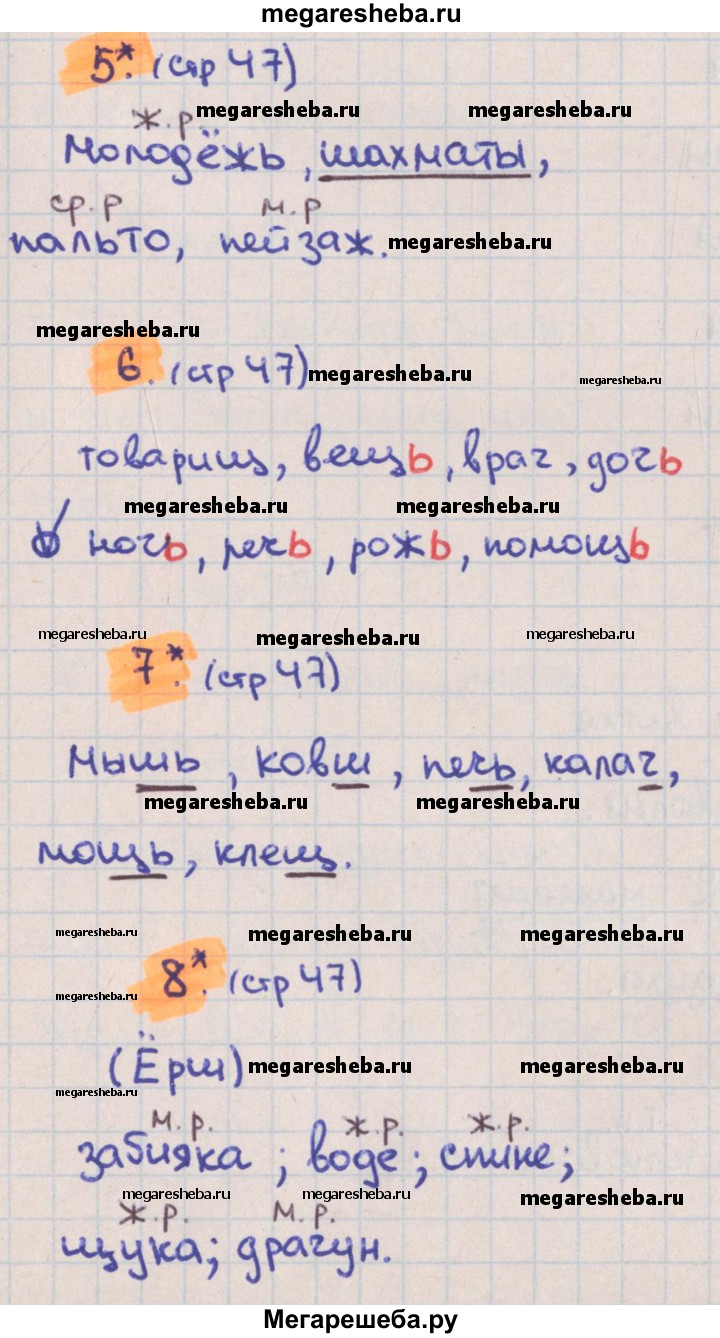 megaresheba.ru
5*. (стр 47)
megaresheba.ru megaresheba.ru
ж.р.
молодёжь, шахматы,
ср.р м.р
пальто, пейзаж. megaresheba.ru
megaresheba.ru
6. (стр 47) megaresheba.ru megaresheba.ru
товарищ, вещь, врач, дочь
megaresheba.ru megaresheba.ru
ночь, речь, рожь, помощь
megaresheba.ru megaresheba.ru megaresheba.ru
7*. (стр 47)
мышь, ковш, печь, калач,
megaresheba.ru megaresheba.ru
мощь, клещ.
megaresheba.ru megaresheba.ru megaresheba.ru
8*. (стр 47)
megaresheba.ru
(Ёрш) megaresheba.ru megaresheba.ru
megaresheba.ru
м.р. ж.р. ж.р.
забияка; воде; спине;
megaresheba.ru megaresheba.ru megaresheba.ru
ж.р. м.р.
щука; драчун.
Мегарешеба.ру